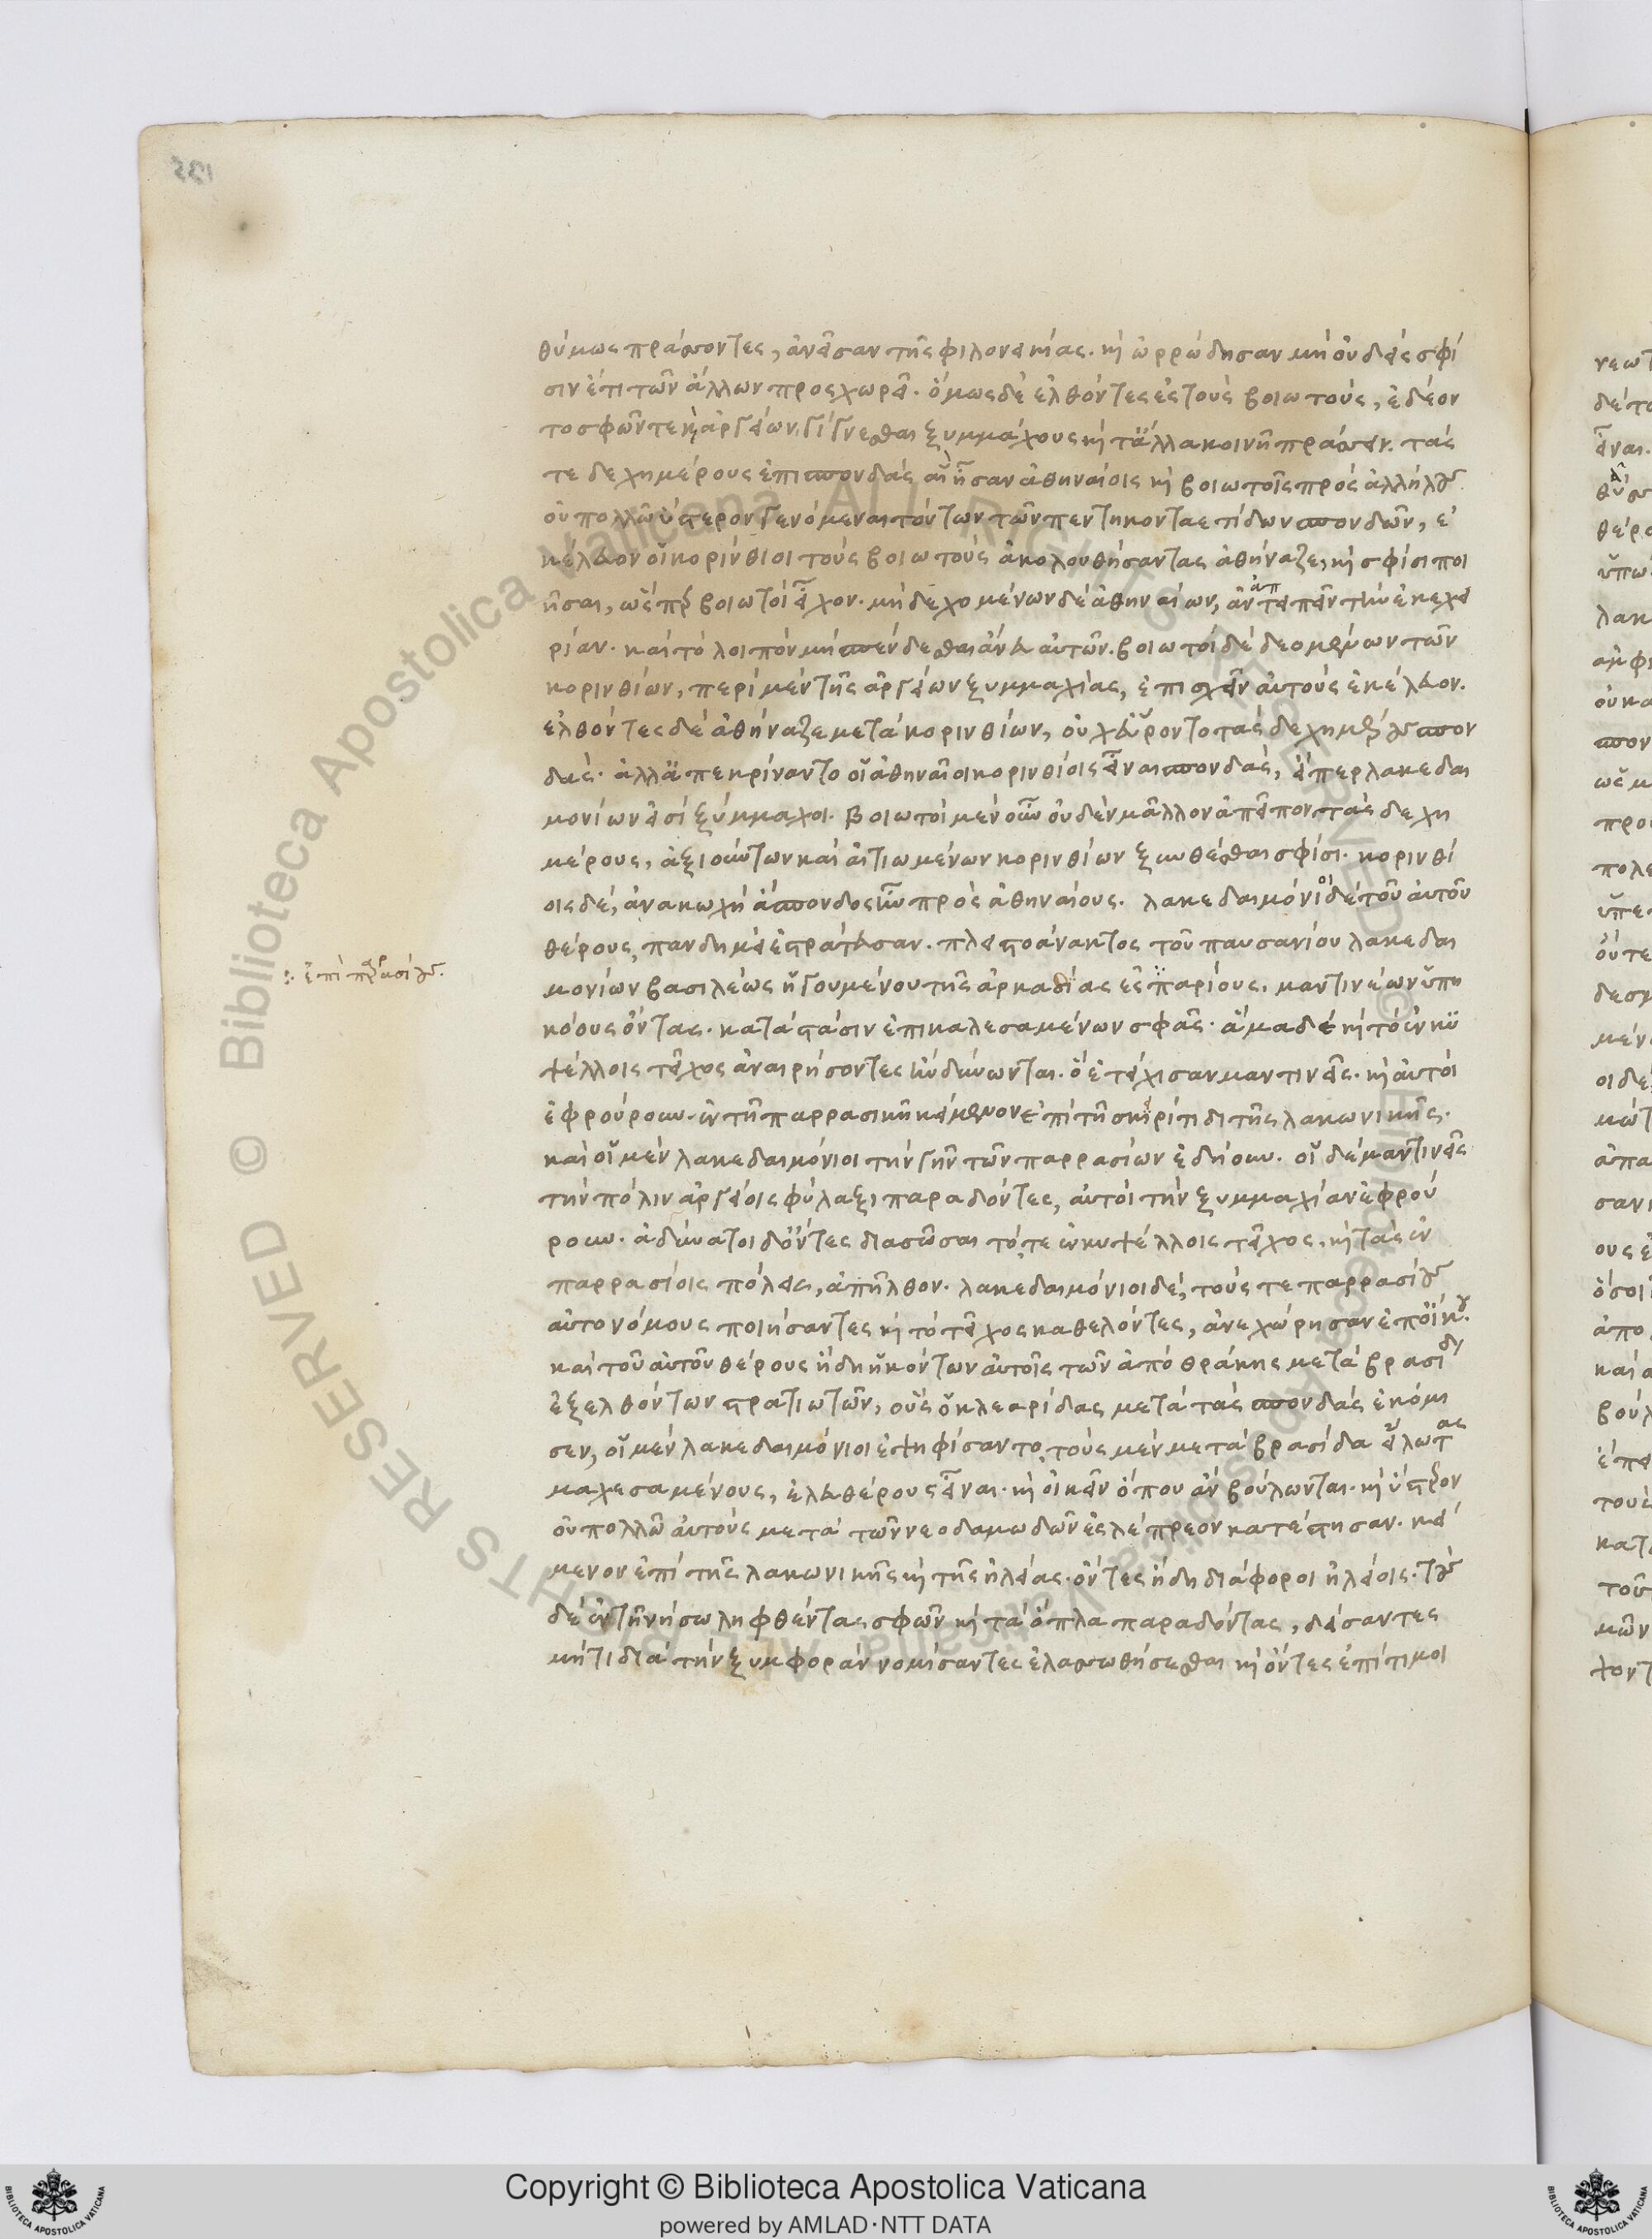 θύμως πράσσοντες, ἀνεῖσαν τῆς φιλονεικίας. καὶ ὠρρώδησαν μὴ οὐδείς σφί
σιν ἔτι τῶν ἄλλων προσχωρεῖ. ὅμως δὲ ἐλθόντες ἐς τοὺς βοιωτούς, ἐδέον
το σφῶν τε καὶ ἀργείων γίγνεσθαι ξυμμάχους καὶ τἄλλα κοινῆ πράσσειν. τάς
τε δεχημέρους ἐπισπονδάς αἳ ἦσαν ἀθηναίοις καὶ βοιωτοῖς πρὸς ἀλλήλους
οὐ πολλῶ ὕστερον γενόμεναι τούτων τῶν πεντηκονταετίδων σπονδῶν, ἐ
κέλευον οἱ κορίνθιοι τοὺς βοιωτοὺς ἀκολουθήσαντας ἀθήναζε, καὶ σφίσι ποι
ῆσαι, ὥσπερ βοιωτοὶ εἶχον. μὴ δεχομένων δὲ ἀθηναίων, ἀντειπεῖν τὴν ἐκεχει
απ
ρίαν. καὶ τὸ λοιπὸν μὴ σπένδεσθαι ἄνευ αὐτῶν. βοιωτοὶ δὲ δεομένων τῶν
κορινθίων, περὶ μὲν τῆς ἀργείων ξυμμαχίας, ἐπισχεῖν αὐτοὺς ἐκέλευον.
ἐλθόντες δὲ ἀθήναζε μετὰ κορινθίων, οὐχ εὕροντο τὰς δεχημέρους σπον
δάς. ἀλλ' ἀπεκρίναντο οἱ ἀθηναῖοι κορινθίοις εἶναι σπονδάς, εἴπερ λακεδαι
μονίων εἰσὶ ξύμμαχοι. βοιωτοὶ μὲν οὖν οὐδὲν μᾶλλον ἀπεῖπον τὰς δεχη
μέρους, ἀξιούντων καὶ αἰτιωμένων κορινθίων ξυνθέσθαι σφίσι. κορινθί
οις δέ, ἀνακωχὴ ἄσπονδος ἦν πρὸς ἀθηναίους. λακεδαιμόνιοι δὲ τοῦ αὐτοῦ
θέρους, πανδημεὶ ἐστράτευσαν. πλειστοάνακτος τοῦ παυσανίου λακεδαι
μονίων βασιλέως ἡγουμένου τῆς ἀρκαδίας ἐς παρίους. μαντινέων ὑπη
∴ ἐπὶ παρρασίους.
κόους ὄντας. κατὰ στάσιν ἐπικαλεσαμένων σφᾶς. ἅμα δὲ καὶ τὸ ἐν κυ
ψέλλοις τεῖχος ἀναιρήσοντες ἢν δύνωνται. ὃ ἐτείχισαν μαντινεῖς. καὶ αὐτοὶ
ἐφρούρουν. ἐν τῆ παρρασικῆ κείμενον ἐπὶ τῆ σκιρίτιδι τῆς λακωνικῆς.
καὶ οἱ μὲν λακεδαιμόνιοι τὴν γῆν τῶν παρρασίων ἐδήουν. οἱ δὲ μαντινεῖς
τὴν πόλιν ἀργείοις φύλαξι παραδόντες, αὐτοὶ τὴν ξυμμαχίαν ἐφρού
ρουν. ἀδύνατοι δ' ὄντες διασῶσαι τό, τε ἐν κυψέλλοις τεῖχος, καὶ τὰς ἐν
παρρασίοις πόλεις, ἀπῆλθον. λακεδαιμόνιοι δὲ, τούς τε παρρασίους
αὐτονόμους ποιήσαντες καὶ τὸ τεῖχος καθελόντες, ἀνεχώρησαν ἐπ' οἴκου.
καὶ τοῦ αὐτοῦ θέρους ἤδη ἡκόντων αὐτοῖς τῶν ἀπὸ θράκης μετὰ βρασίδου
ἐξελθόντων στρατιωτῶν, οὓς ὁ κλεαρίδας μετὰ τὰς σπονδὰς ἐκόμι
σεν, οἱ μὲν λακεδαιμόνιοι ἐψηφίσαντο, τοὺς μὲν μετὰ βρασίδα εἵλωτας
μαχεσαμένους, ἐλευθέρους εἶναι. καὶ οἰκεῖν ὅπου ἂν βούλωνται. καὶ ὕστερον
οὐ πολλῶ αὐτοὺς μετὰ τῶν νεοδαμωδῶν ἐς λέπρεον κατέστησαν. κεί
μενον ἐπὶ τῆς λακωνικῆς καὶ τῆς ἠλείας. ὄντες ἤδη διάφοροι ἠλείοις. τοὺς
δὲ ἐν τῆ νήσω ληφθέντας σφῶν καὶ τὰ ὅπλα παραδόντας, δείσαντες
μή τι διὰ τὴν ξυμφορὰν νομίσαντες ἐλασσωθήσεσθαι καὶ ὄντες ἐπίτιμοι
Copyright © Biblioteca Apostolica Vaticana
powered by AMLAD·NTT DATA